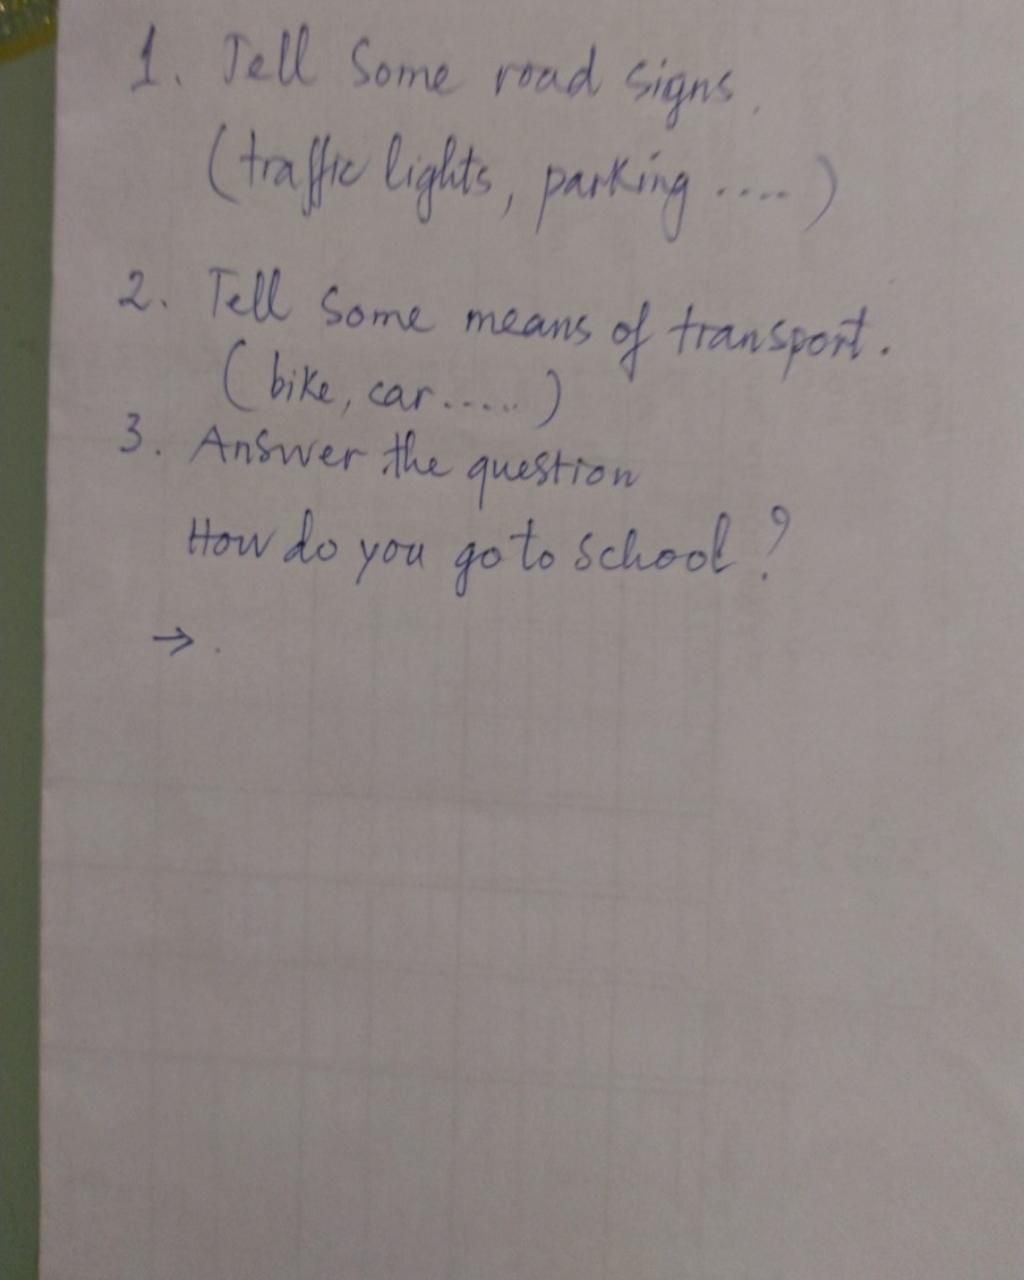 1. Tell Some road signs.
(traffic lights, parking ....)
2. Tell Some means of transport.
(bike, car.....)
3. Answer the question
How do you go to School?
→.